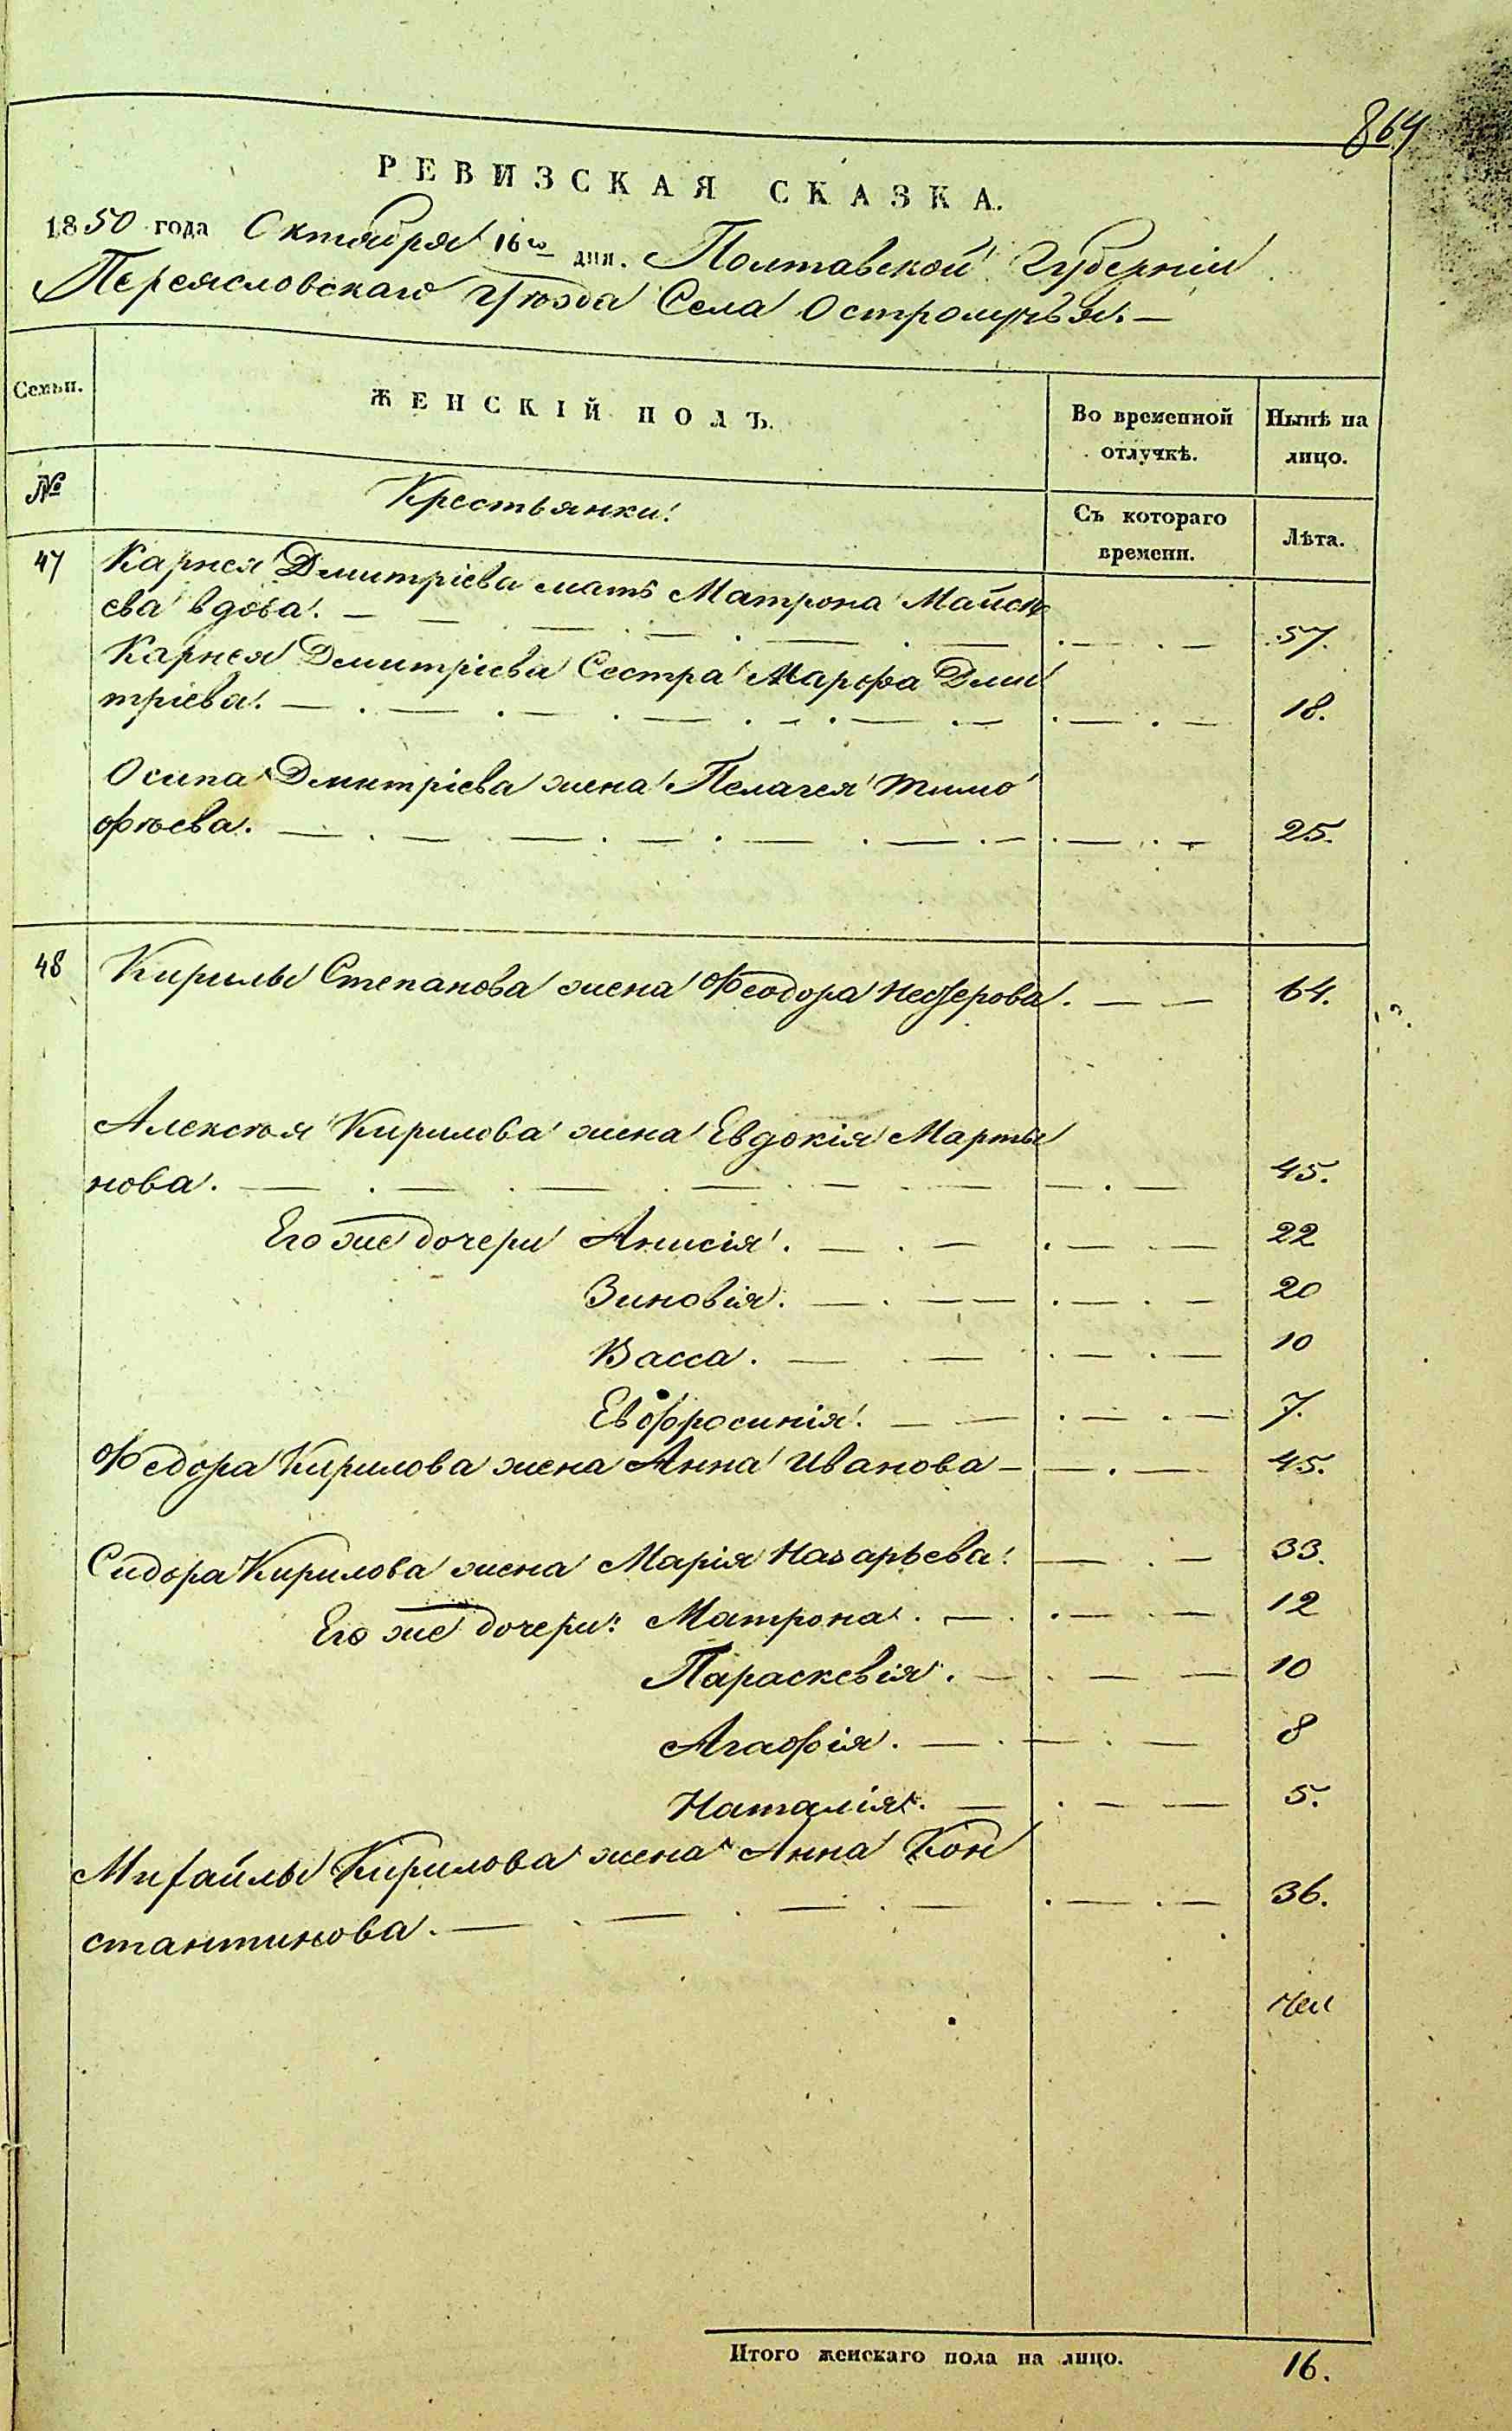 864
РЕВИЗСКАЯ СКАЗКА.
1850 года Октября 16го дня. Полтавской Губерніи
Переясловскаго Уѣзда Села Остролучья. —
Семьи. ЖЕНСКІЙ ПОЛЪ. Во временной отлучкѣ. Нынѣ на лицо.
№ Крестьянки. Съ котораго времени. Лѣта.
47 Карнея Дмитріева мать Матрона
ева вдова. 57.
Карнея Дмитріева Сестра Марфа Дми
тріева. 18.
Осипа Дмитріева жена Пелагея Тимо
фѣева. 25.
48 Кирилы Степанова жена Феодора Несterова. 64.
Алексѣя Кирилова жена Евдокія Марты
нова. 45.
Его же дочери Анисія. 22
Зиновія. 20
Васса. 10
Евфросинія. 7.
Федора Кирилова жена Анна Иванова 45.
Сидора Кирилова жена Марія Назарьева. 33.
Его же дочери: Матрона. 12
Параскевія. 10
Агафія. 8
Наталія. 5.
Михайлы Кирилова жена Анна Кон
стантинова. 36.
Итого женскаго пола на лицо. 16.